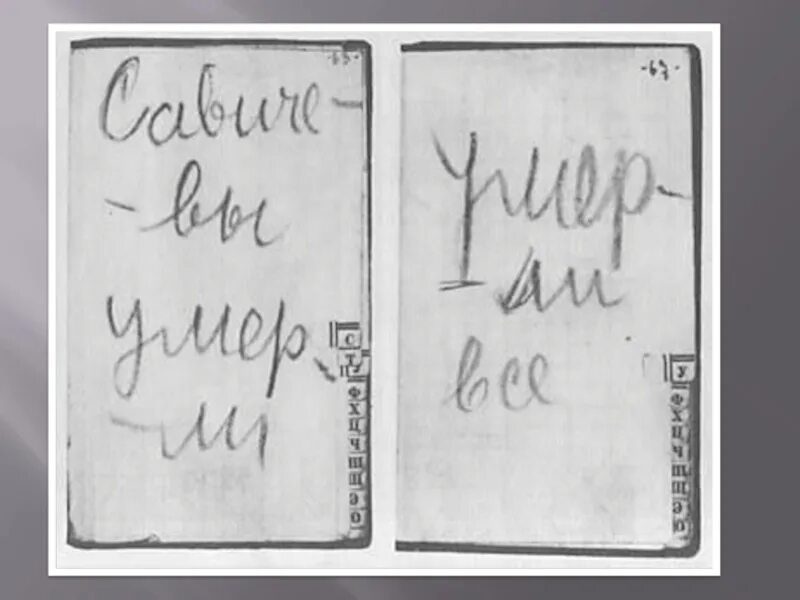 -63-
Савиче-
-вы
умер-
-ли
С
Т
У
Ф
Х
Ц
Ч
Ш
Щ
Э
О
-67-
умер-
-ли
все
У
Ф
Х
Ц
Ч
Ш
Щ
Э
О